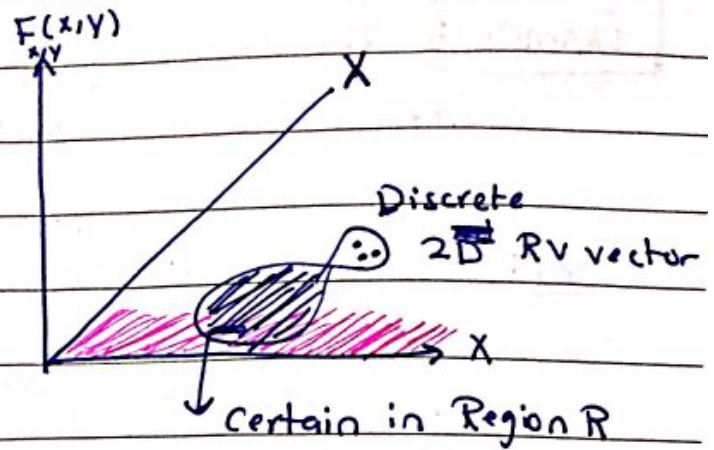 F(x,y)
x,y
X
Discrete
2D RV vector
X
Certain in Region R